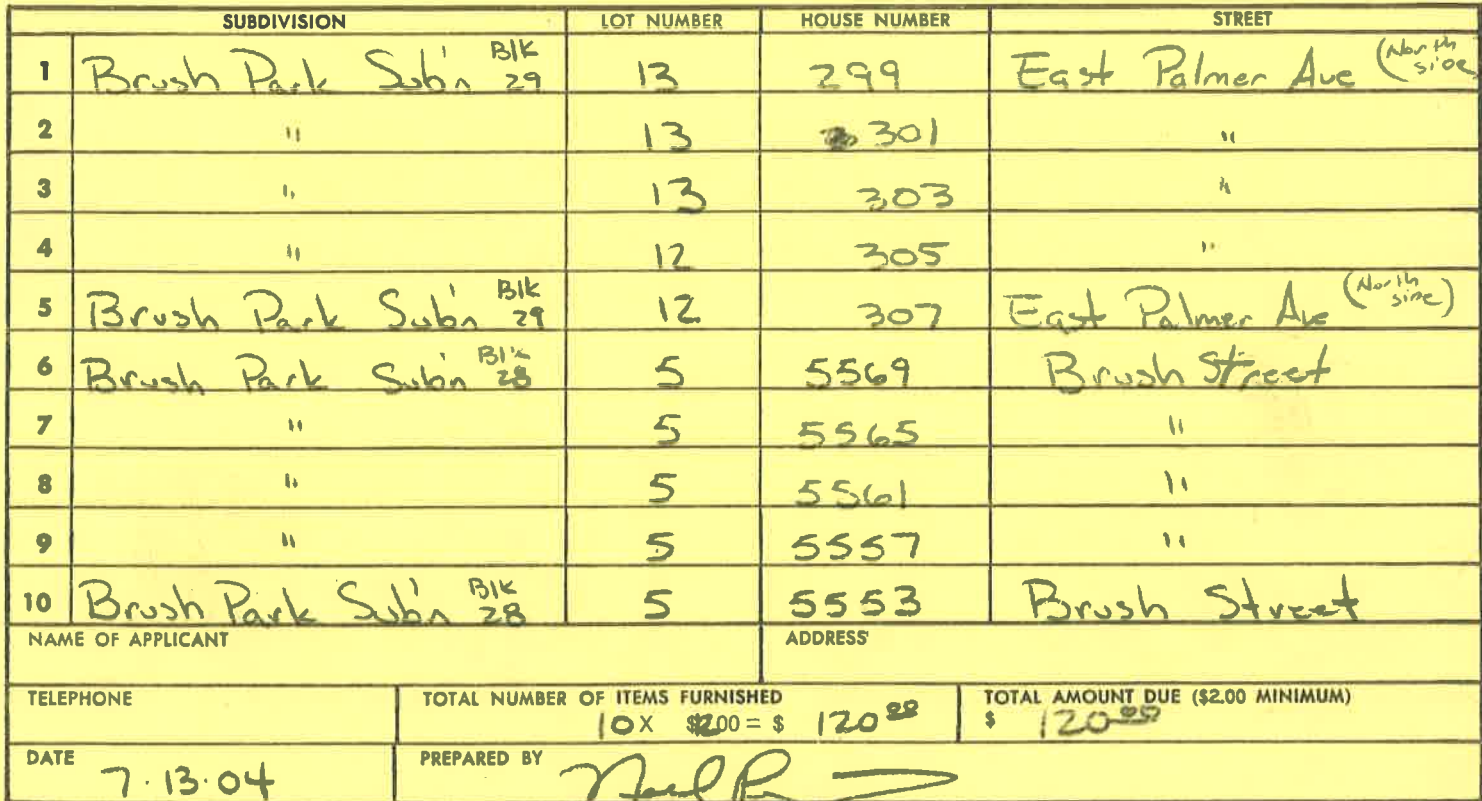 SUBDIVISION LOT NUMBER HOUSE NUMBER STREET
1 Brush Park Sub'n Blk 29 13 299 East Palmer Ave (North side
2 " 13 301 "
3 " 13 303 "
4 " 12 305 "
5 Brush Park Sub'n Blk 29 12 307 East Palmer Ave (North side)
6 Brush Park Sub'n Blk 28 5 5569 Brush Street
7 " 5 5565 "
8 " 5 5561 "
9 " 5 5557 "
10 Brush Park Sub'n Blk 28 5 5553 Brush Street
NAME OF APPLICANT ADDRESS
TELEPHONE TOTAL NUMBER OF ITEMS FURNISHED TOTAL AMOUNT DUE ($2.00 MINIMUM)
10 X $12.00 = $ 120.00 $ 120.00
DATE PREPARED BY
7.13.04